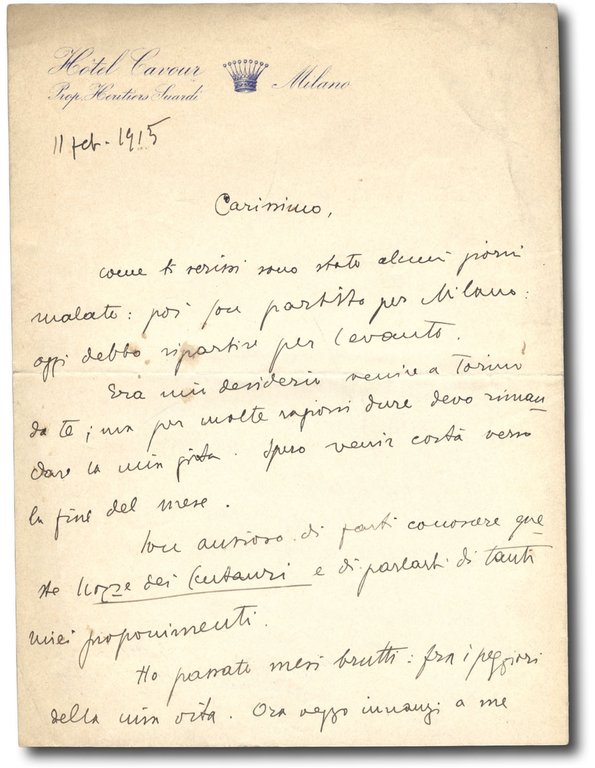 Hôtel Cavour Milano
Prop. Heritiers Suardi
11 feb. 1915
Carissimo,
come ti scrissi sono stato alcuni giorni
malato: poi son partito per Milano:
oggi debbo ripartire per Levanto.
Era mio desiderio venire a Torino
da te; ma per molte ragioni dure devo riman
dare la mia gita. Spero venir costà verso
la fine del mese.
Son ansioso di farti conoscere que
ste Nozze dei Centauri e di parlarti di tanti
miei proponimenti.
Ho passato mesi brutti: fra i peggiori
della mia vita. Ora veggo innanzi a me